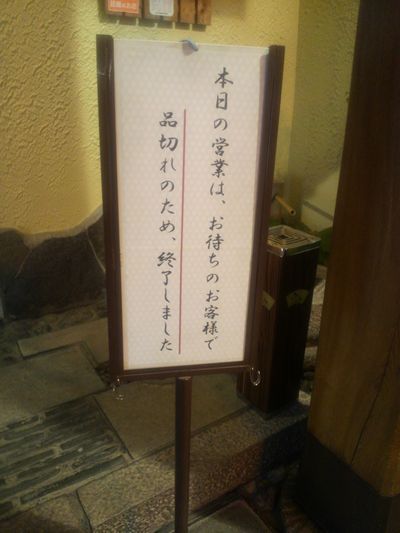 本日の営業は、お待ちのお客様で
品切れのため、終了しました